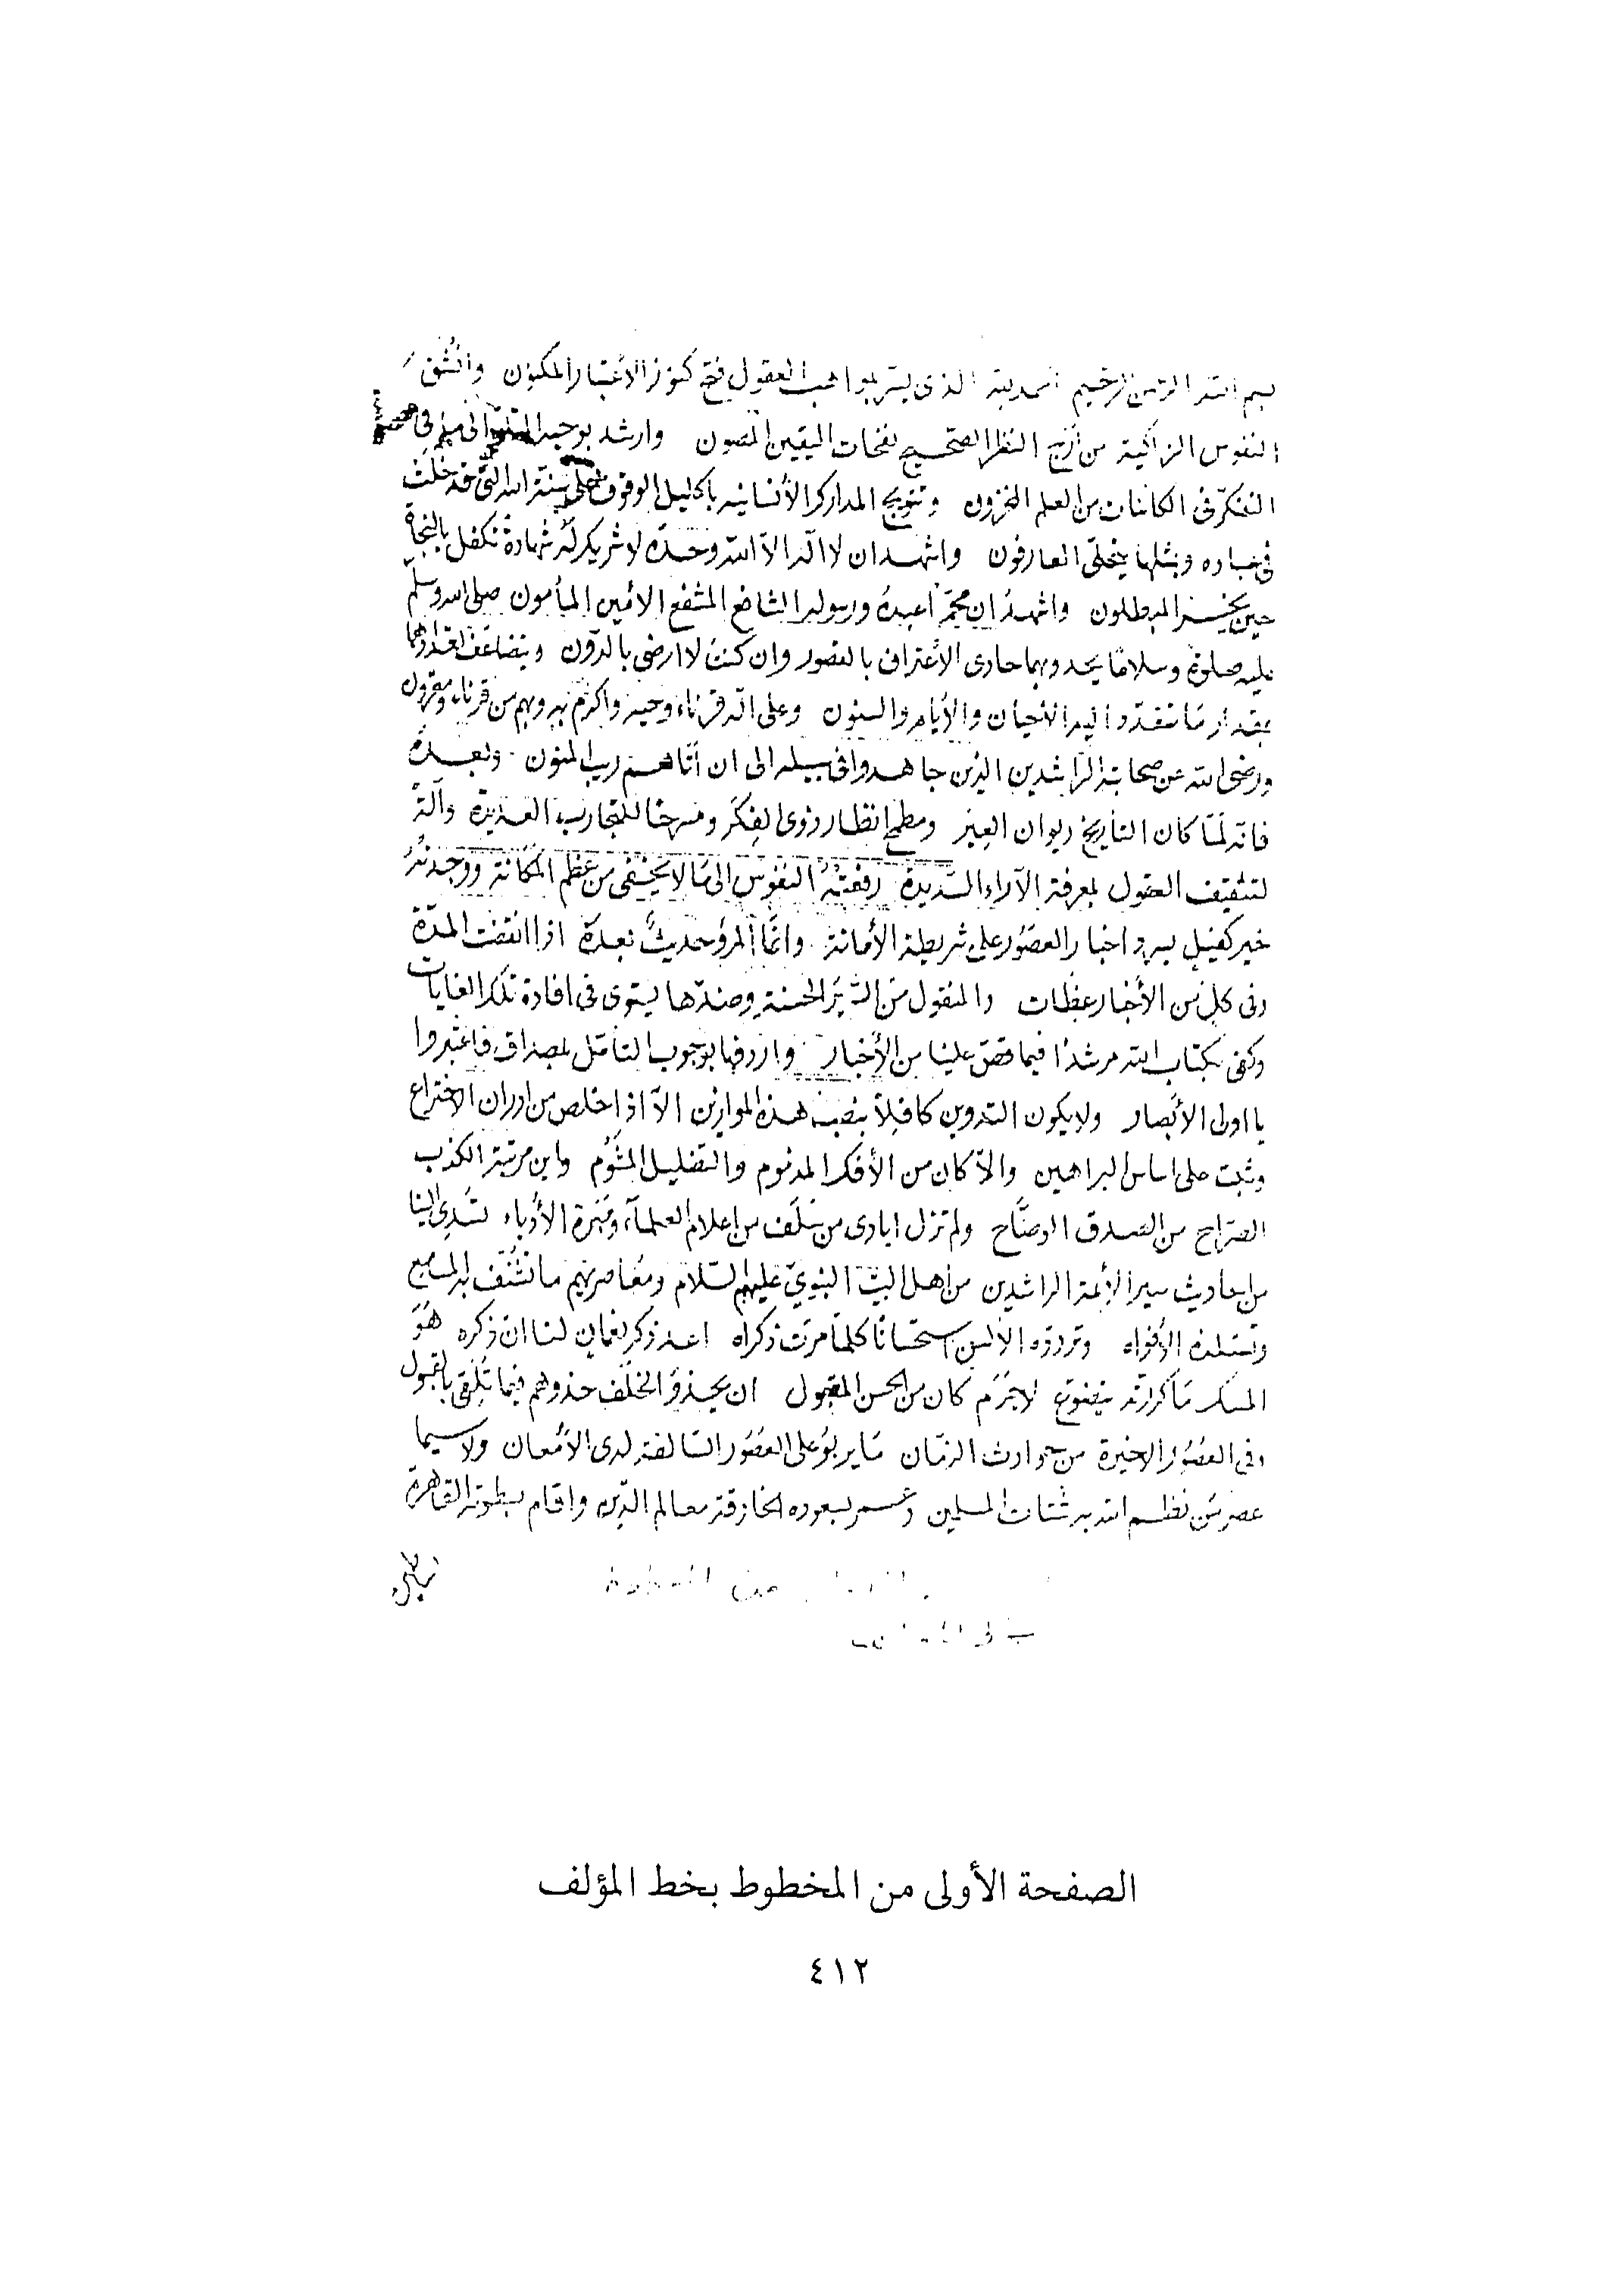 بسم الله الرحمن الرحيم الحمد لله الذي يسر بمواهب العقول فتح كنوز الاعتبار المكنون وانشق
النفوس الزاكية من أريج النظر الصحيح نفحات اليقين المصون وارشد بوحيه الى ما في
التفكر في الكائنات من العلم المخزون وتتويج المدارك الأنسانيه بأكاليل الوقوف على سنة الله التي قد خلت
في عباده وبمثلها يتحلى العارفون واشهد ان لا اله الا الله وحده لا شريك له شهادة تكفل بالنجاة
حين يخسر المبطلون واشهد ان محمدا عبده ورسوله الشافع المشفع الامين المأمون صلى الله وسلم
عليه صلوة وسلاما يحدو بهما حادى الأعتراف بالقصور وان كنت لا ارضى بالدون ويتضاعف تعدادهما
بمقدار ما تنفد اليه الأحيان والأيام والسنون وعلى اله قرناء وحيه واكرم به وبهم من قرناء ومقرون
ورضى الله عن صحابته الراشدين الذين جاهدوا في سبيله الى ان أتاهم ريب المنون وبعده
فانه لمّا كان التأريخ ديوان العِبَر ومطمح انظار ذوى الفِكَر ومسرحا للتجارب العديدة وآلة
لتثقيف العقول لمعرفة الآراء السّديدة رفعته النفوس الى ما لا يخفى من عظم المكانة ووجدته
خير كفيل بسرد اخبار العصور على شريطة الأمانة وانّما المرؤ حديثٌ بعدهَ اذا انقضت المدّة
وفى كلٍ من الأخبار عظات والمنقول من السّيَر الحسنة وضدّها يستوى في افادة تلك الغايات
وكفى بكتاب الله مرشدًا فيما قصّ علينا من الأخبار واردفها بوجوب التأمّل بمصداق فاعتبروا
يا اولى الأبصار ولا يكون التدوين كافِلاً بنصب هذه الموازين الاّ اذا خلص من ادران الاختراع
وثبت على اساس البراهين والاّ كان من الأفك المذموم والتضليل المشؤم واين مرتبة الكذب
الصّراح من الصدق الوضّاح ولم تزل ايادى من سَلَف من اعلام العلماء ومَهَرة الأدباء تُسدِى الينا
من احاديث سير الأئمة الراشدين من اهل البيت النبويّ عليهم السّلام ومُعاصريهم ما تُشَنَّف به المسامع
وتستلذه الأفواه وتردّده الألسن استحسانًا كلّما مرّت ذكراه اعد ذكر نعمانٍ لنا ان ذكره هُوَ
المسك مَا كرّرته يتضوّع لا جَرَم كان من الحسن المقبول ان يحذوَ الخَلَف حذوهم فيما تُلقى بالقبول
وفى العصُور الاخيرة من حوادث الزمَان مَا يربُو على العصُور السّالفة لدى الأمعان ولا سيما
عصر مَن نظم الله به شتات المسلمين وعمر بسعوده الخارقة معالم الدّين واقام بسطوته القاهرة
الصفحة الأولى من المخطوط بخط المؤلف
٤١٢